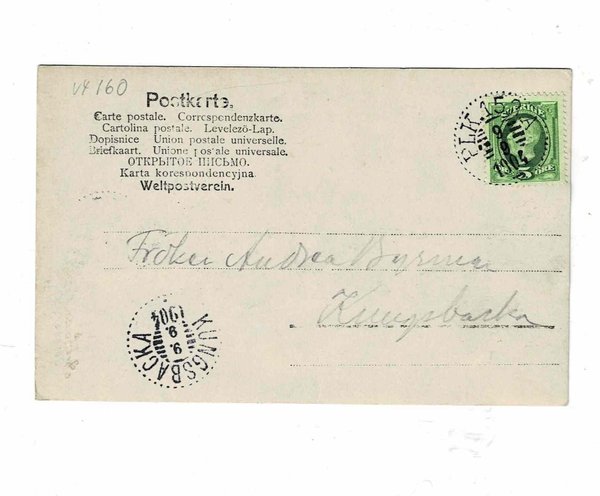 V4160
Postkarte.
Carte postale. Correspondenzkarte.
Cartolina postale. Levelező-Lap.
Dopisnice Union postale universelle.
Briefkaart. Unione postale universale.
ОТКРЫТОЕ ПИСЬМО.
Karta korespondencyjna
Weltpostverein.
PLK 153
9
9
1904
SVERIGE
5 ÖRE
Fröken Andrea
Kungsbacka
KUNGSBACKA
9.9.
1904